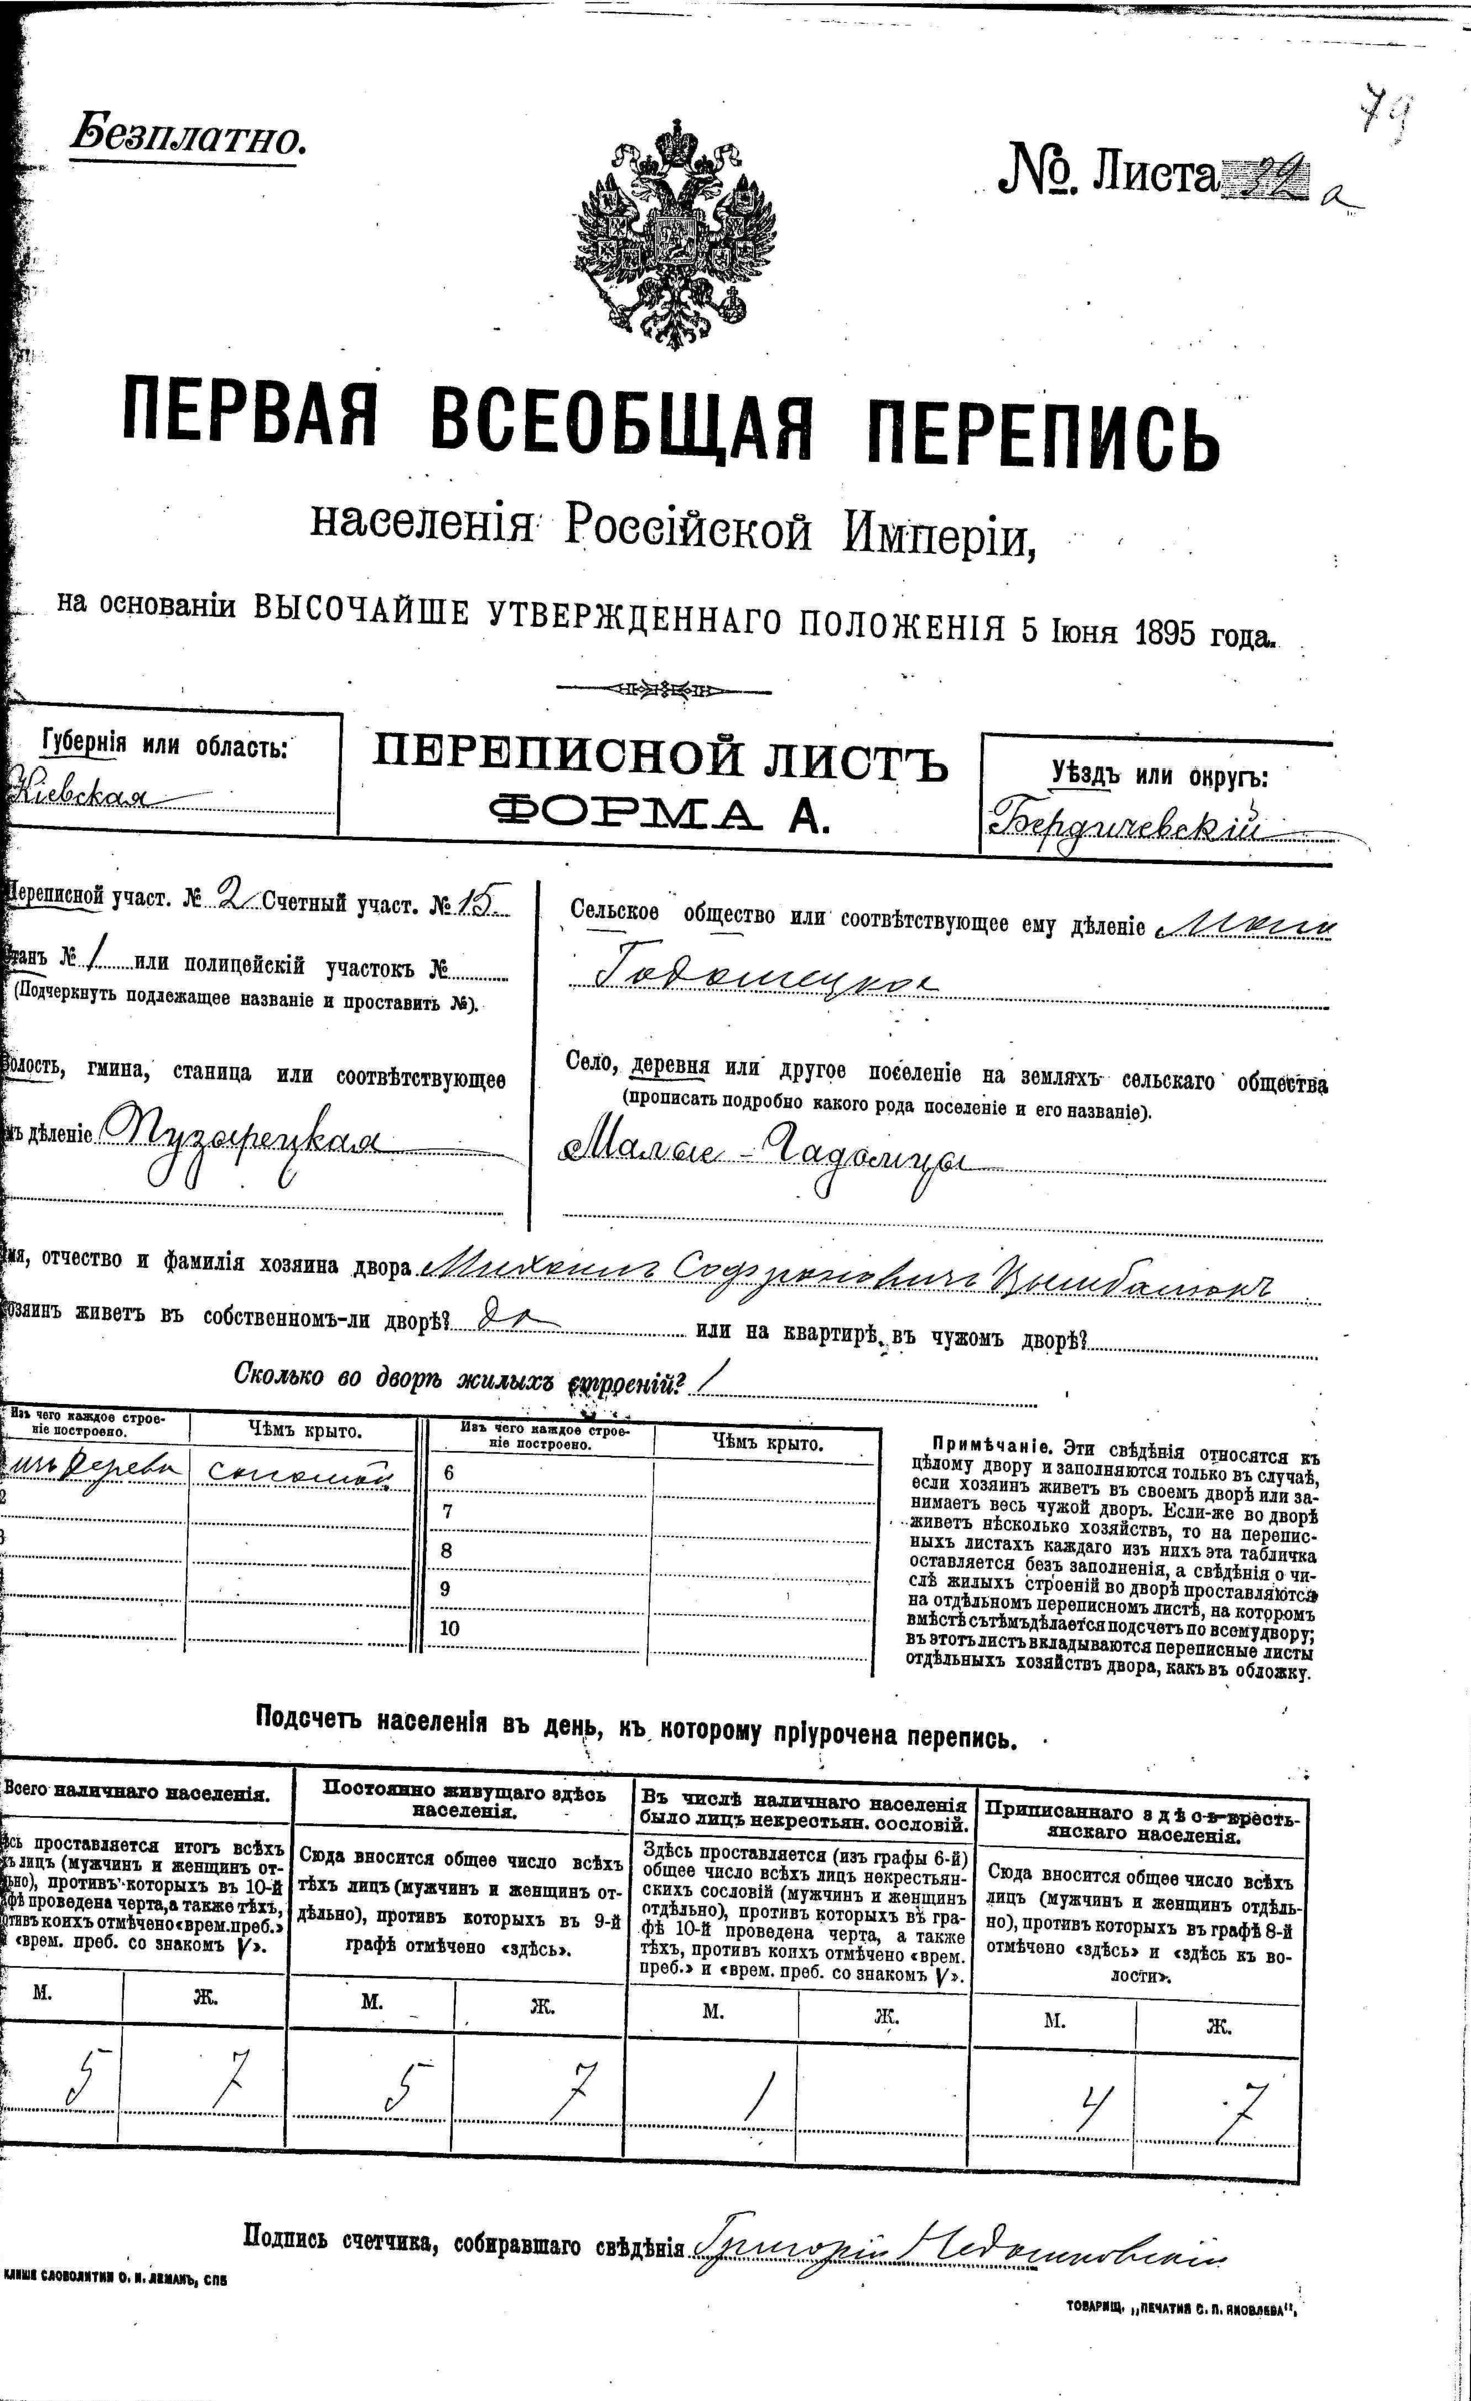 79
Безплатно.
№. Листа 32 а
ПЕРВАЯ ВСЕОБЩАЯ ПЕРЕПИСЬ
населенія Россійской Имперіи,
на основаніи ВЫСОЧАЙШЕ УТВЕРЖДЕННАГО ПОЛОЖЕНІЯ 5 Іюня 1895 года.
Губернія или область:
Кіевская
ПЕРЕПИСНОЙ ЛИСТЪ
ФОРМА А.
Уѣздъ или округъ:
Бердичевскій
Переписной участ. № 2 Счетный участ. № 15
Станъ № 1 или полицейскій участокъ №
(Подчеркнуть подлежащее названіе и проставить №).
Волость, гмина, станица или соотвѣтствующее
имъ дѣленіе Пузырецкая
Сельское общество или соотвѣтствующее ему дѣленіе Мало
Гадомецкое
Село, деревня или другое поселеніе на земляхъ сельскаго общества
(прописать подробно какого рода поселеніе и его названіе).
Малые-Гадомцы
Имя, отчество и фамилія хозяина двора Михаилъ Софроновичъ Цымбалюкъ
Хозяинъ живетъ въ собственномъ-ли дворѣ? да или на квартирѣ въ чужомъ дворѣ?
Сколько во дворѣ жилыхъ строеній? 1
Изъ чего каждое строе-
ніе построено.
Чѣмъ крыто.
Изъ чего каждое строе-
ніе построено.
Чѣмъ крыто.
изъ дерева соломой 6
2 7
3 8
9
10
Примѣчаніе. Эти свѣдѣнія относятся къ
цѣлому двору и заполняются только въ случаѣ,
если хозяинъ живетъ въ своемъ дворѣ или за-
нимаетъ весь чужой дворъ. Если-же во дворѣ
живетъ нѣсколько хозяйствъ, то на перепис-
ныхъ листахъ каждаго изъ нихъ эта табличка
оставляется безъ заполненія, а свѣдѣнія о чи-
слѣ жилыхъ строеній во дворѣ проставляются
на отдѣльномъ переписномъ листѣ, на которомъ
вмѣстѣ съ тѣмъ дѣлается подсчетъ по всему двору;
въ этотъ листъ вкладываются переписные листы
отдѣльныхъ хозяйствъ двора, какъ въ обложку.
Подсчетъ населенія въ день, къ которому пріурочена перепись.
Всего наличнаго населенія.
Здѣсь проставляется итогъ всѣхъ
тѣхъ лицъ (мужчинъ и женщинъ от-
дѣльно), противъ которыхъ въ 10-й
графѣ проведена черта, а также тѣхъ,
противъ коихъ отмѣчено «врем. преб.»
и «врем. преб. со знакомъ V».
Постоянно живущаго здѣсь
населенія.
Сюда вносится общее число всѣхъ
тѣхъ лицъ (мужчинъ и женщинъ от-
дѣльно), противъ которыхъ въ 9-й
графѣ отмѣчено «здѣсь».
Въ числѣ наличнаго населенія
было лицъ некрестьян. сословій.
Здѣсь проставляется (изъ графы 6-й)
общее число всѣхъ лицъ некрестьян-
скихъ сословій (мужчинъ и женщинъ
отдѣльно), противъ которыхъ въ гра-
фѣ 10-й проведена черта, а также
тѣхъ, противъ коихъ отмѣчено «врем.
преб.» и «врем. преб. со знакомъ V».
Приписаннаго здѣсь кресть-
янскаго населенія.
Сюда вносится общее число всѣхъ
лицъ (мужчинъ и женщинъ отдѣль-
но), противъ которыхъ въ графѣ 8-й
отмѣчено «здѣсь» и «здѣсь къ во-
лости».
М. Ж. М. Ж. М. Ж. М. Ж.
5 7 5 7 1 4 7
Подпись счетчика, собиравшаго свѣдѣнія Григорій Недашковскій
КЛИШЕ СЛОВОЛИТНИ О. И. ЛЕМАНЪ, СПБ
ТОВАРИЩ. „ПЕЧАТНЯ С. П. ЯКОВЛЕВА".